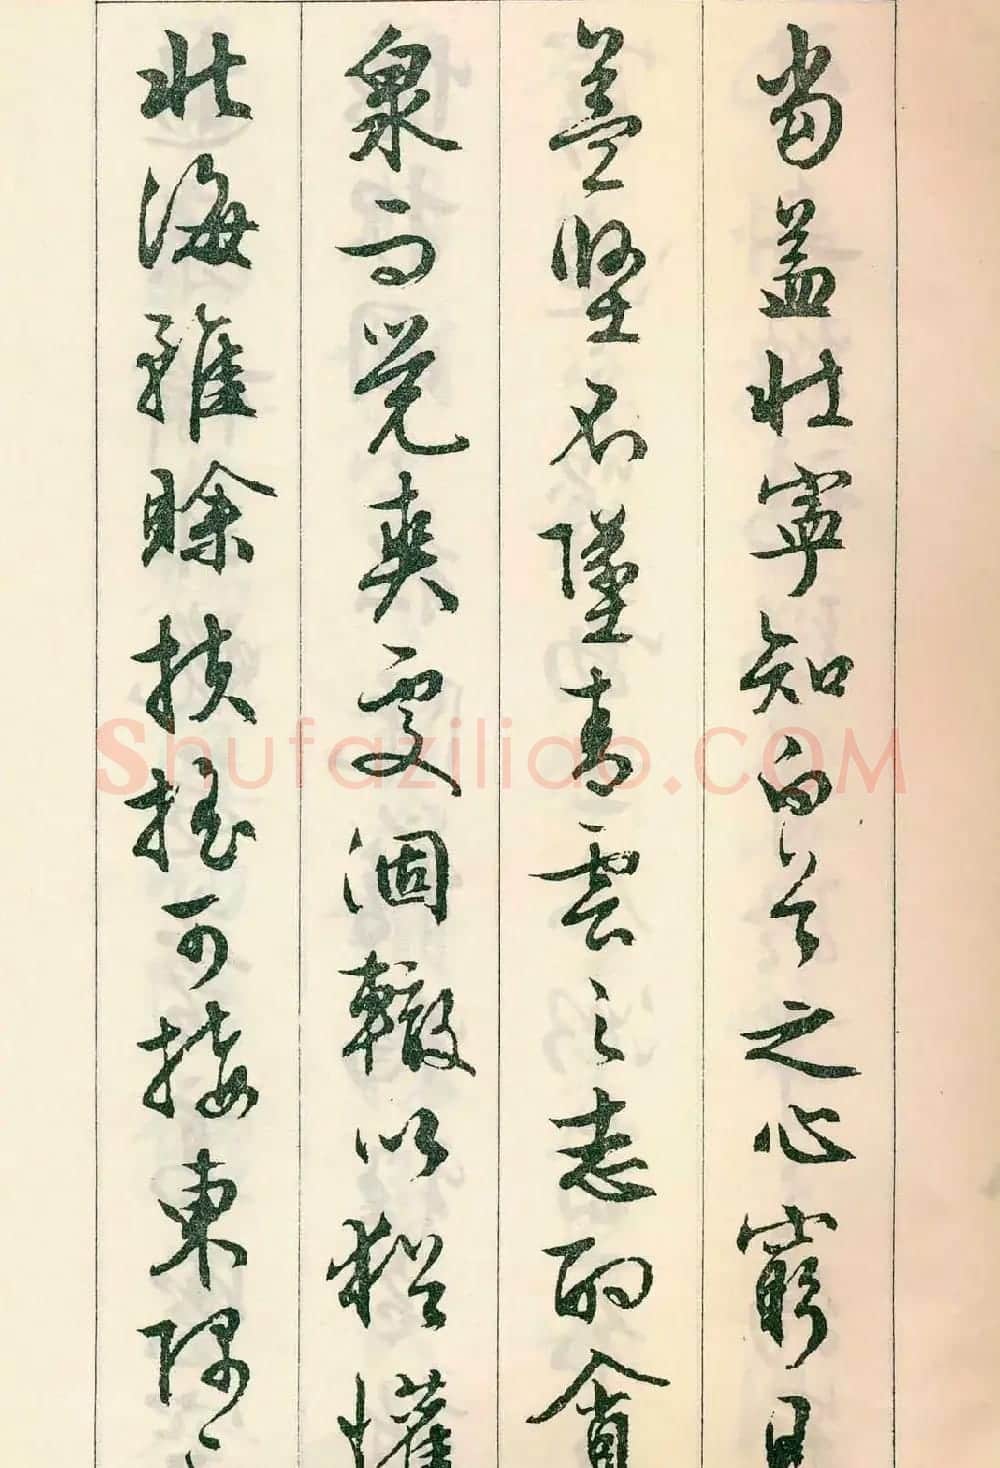 當益壯寧知白首之心窮且
益堅不墜青雲之志酌貪
泉而覺爽處涸轍以猶懽
北海雖賒扶搖可接東隅
Shufaziliao.COM